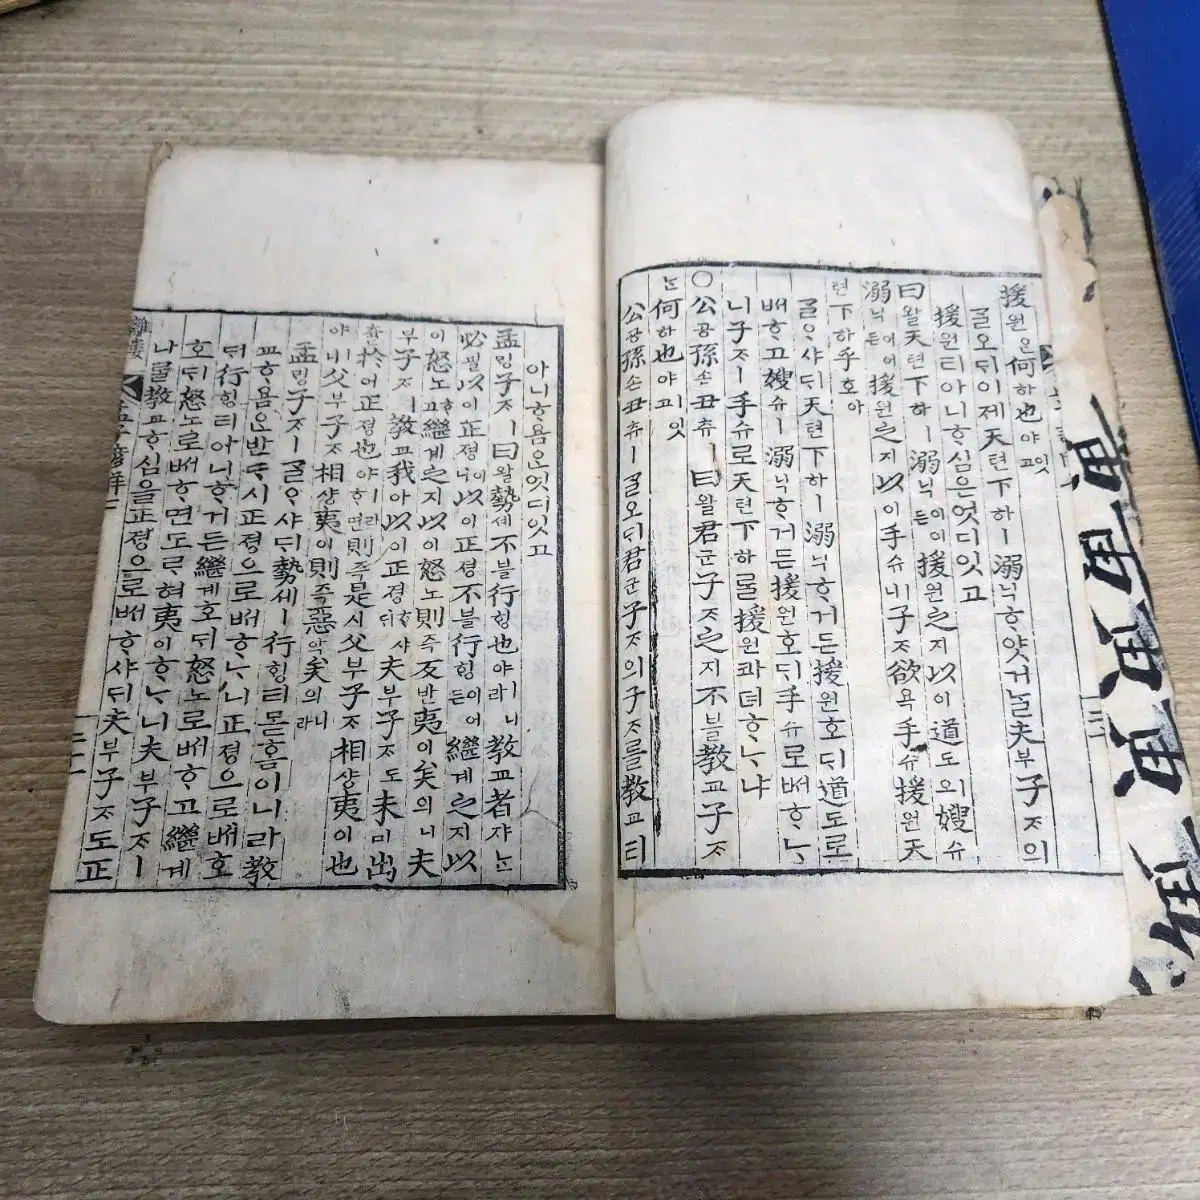 援원은何하也야ㅣ잇고
ᄀᆞᆯ오ᄃᆡ이제天텬下하ㅣ溺닉ᄒᆞ얏거ᄂᆞᆯ夫부子ᄌᆞ의
援원티아니ᄒᆞ심은엇디잇고
曰왈天텬下하ㅣ溺닉든이어援원之지以이道도ㅣ오嫂수
溺닉든이어援원之지以이手슈ㅣ니子ᄌᆞ欲욕手슈援원天
텬下하乎호아
ᄀᆞᆯᄋᆞ샤ᄃᆡ天텬下하ㅣ溺닉ᄒᆞ거든援원호ᄃᆡ道도로
ᄡᅥᄒᆞ고嫂수ㅣ溺닉ᄒᆞ거든援원호ᄃᆡ手슈로ᄡᅥᄒᆞᄂᆞ
니子ᄌᆞㅣ手슈로天텬下하ᄅᆞᆯ援원콰뎌ᄒᆞᄂᆞ냐
○公공孫손丑츄ㅣ曰왈君군子ᄌᆞ之지不블敎교子ᄌᆞ
ᄂᆞᆫ何하也야ㅣ잇고
公공孫손丑츄ㅣᄀᆞᆯ오ᄃᆡ君군子ᄌᆞ의子ᄌᆞ를敎교티
아니ᄒᆞ욤ᄋᆞᆫ엇디잇고
孟ᄆᆡᆼ子ᄌᆞㅣ曰왈勢셰不블行ᄒᆡᆼ也야ㅣ니라敎교者쟈ᄂᆞᆫ
必필以이正졍이니以이正졍不블行ᄒᆡᆼ이어든繼계之지以
이怒노ᄒᆞ고繼계之지以이怒노則즉反반夷이矣의니夫
부子ᄌᆞㅣ敎교我아以이正졍ᄒᆞ샤ᄃᆡ夫부子ᄌᆞ도未미出
츌於어正졍也야ㅣ라ᄒᆞ면則즉是시父부子ᄌᆞ相샹夷이也
야ㅣ니父부子ᄌᆞ相샹夷이則즉惡악矣의니라
孟ᄆᆡᆼ子ᄌᆞㅣᄀᆞᆯᄋᆞ샤ᄃᆡ勢셰ㅣ行ᄒᆡᆼ티몯홈이니라敎
교ᄒᆞ욤ᄋᆞᆫ반ᄃᆞ시正졍으로ᄡᅥᄒᆞᄂᆞ니正졍으로ᄡᅥ호
ᄃᆡ行ᄒᆡᆼ티아니ᄒᆞ거든繼계호ᄃᆡ怒노로ᄡᅥᄒᆞ고繼계
호ᄃᆡ怒노로ᄡᅥᄒᆞ면도로혀夷이ᄒᆞᄂᆞ니夫부子ᄌᆞㅣ
나ᄅᆞᆯ敎교ᄒᆞ심을正졍으로ᄡᅥᄒᆞ샤ᄃᆡ夫부子ᄌᆞ도正
離婁